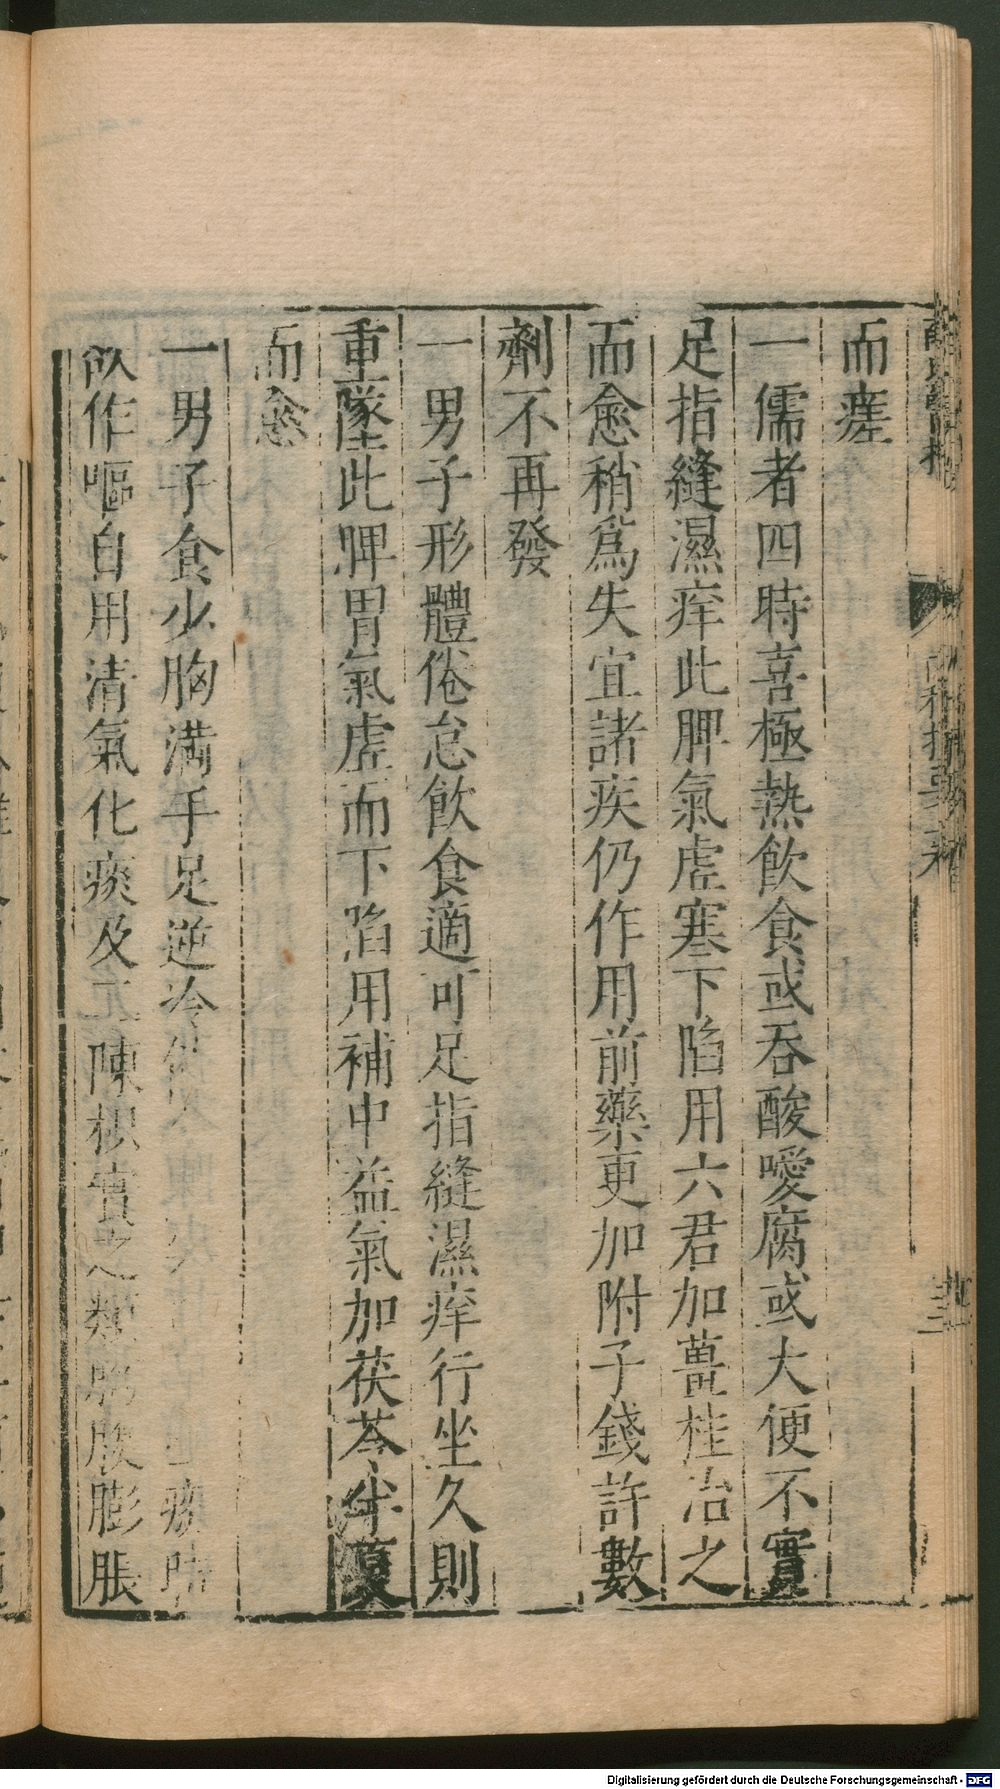 而瘥
一儒者四時喜極熱飲食或吞酸噯腐或大便不實
足指縫濕痒此脾氣虛寒下陷用六君加薑桂治之
而愈稍爲失宜諸疾仍作用前藥更加附子錢許數
劑不再發
一男子形體倦怠飲食適可足指縫濕痒行坐久則
重墜此脾胃氣虛而下陷用補中益氣加茯苓半夏
而愈
一男子食少胸滿手足逆冷
飲作嘔自用清氣化痰及二陳枳實之類胸腹膨脹
Digitalisierung gefördert durch die Deutsche Forschungsgemeinschaft - DFG